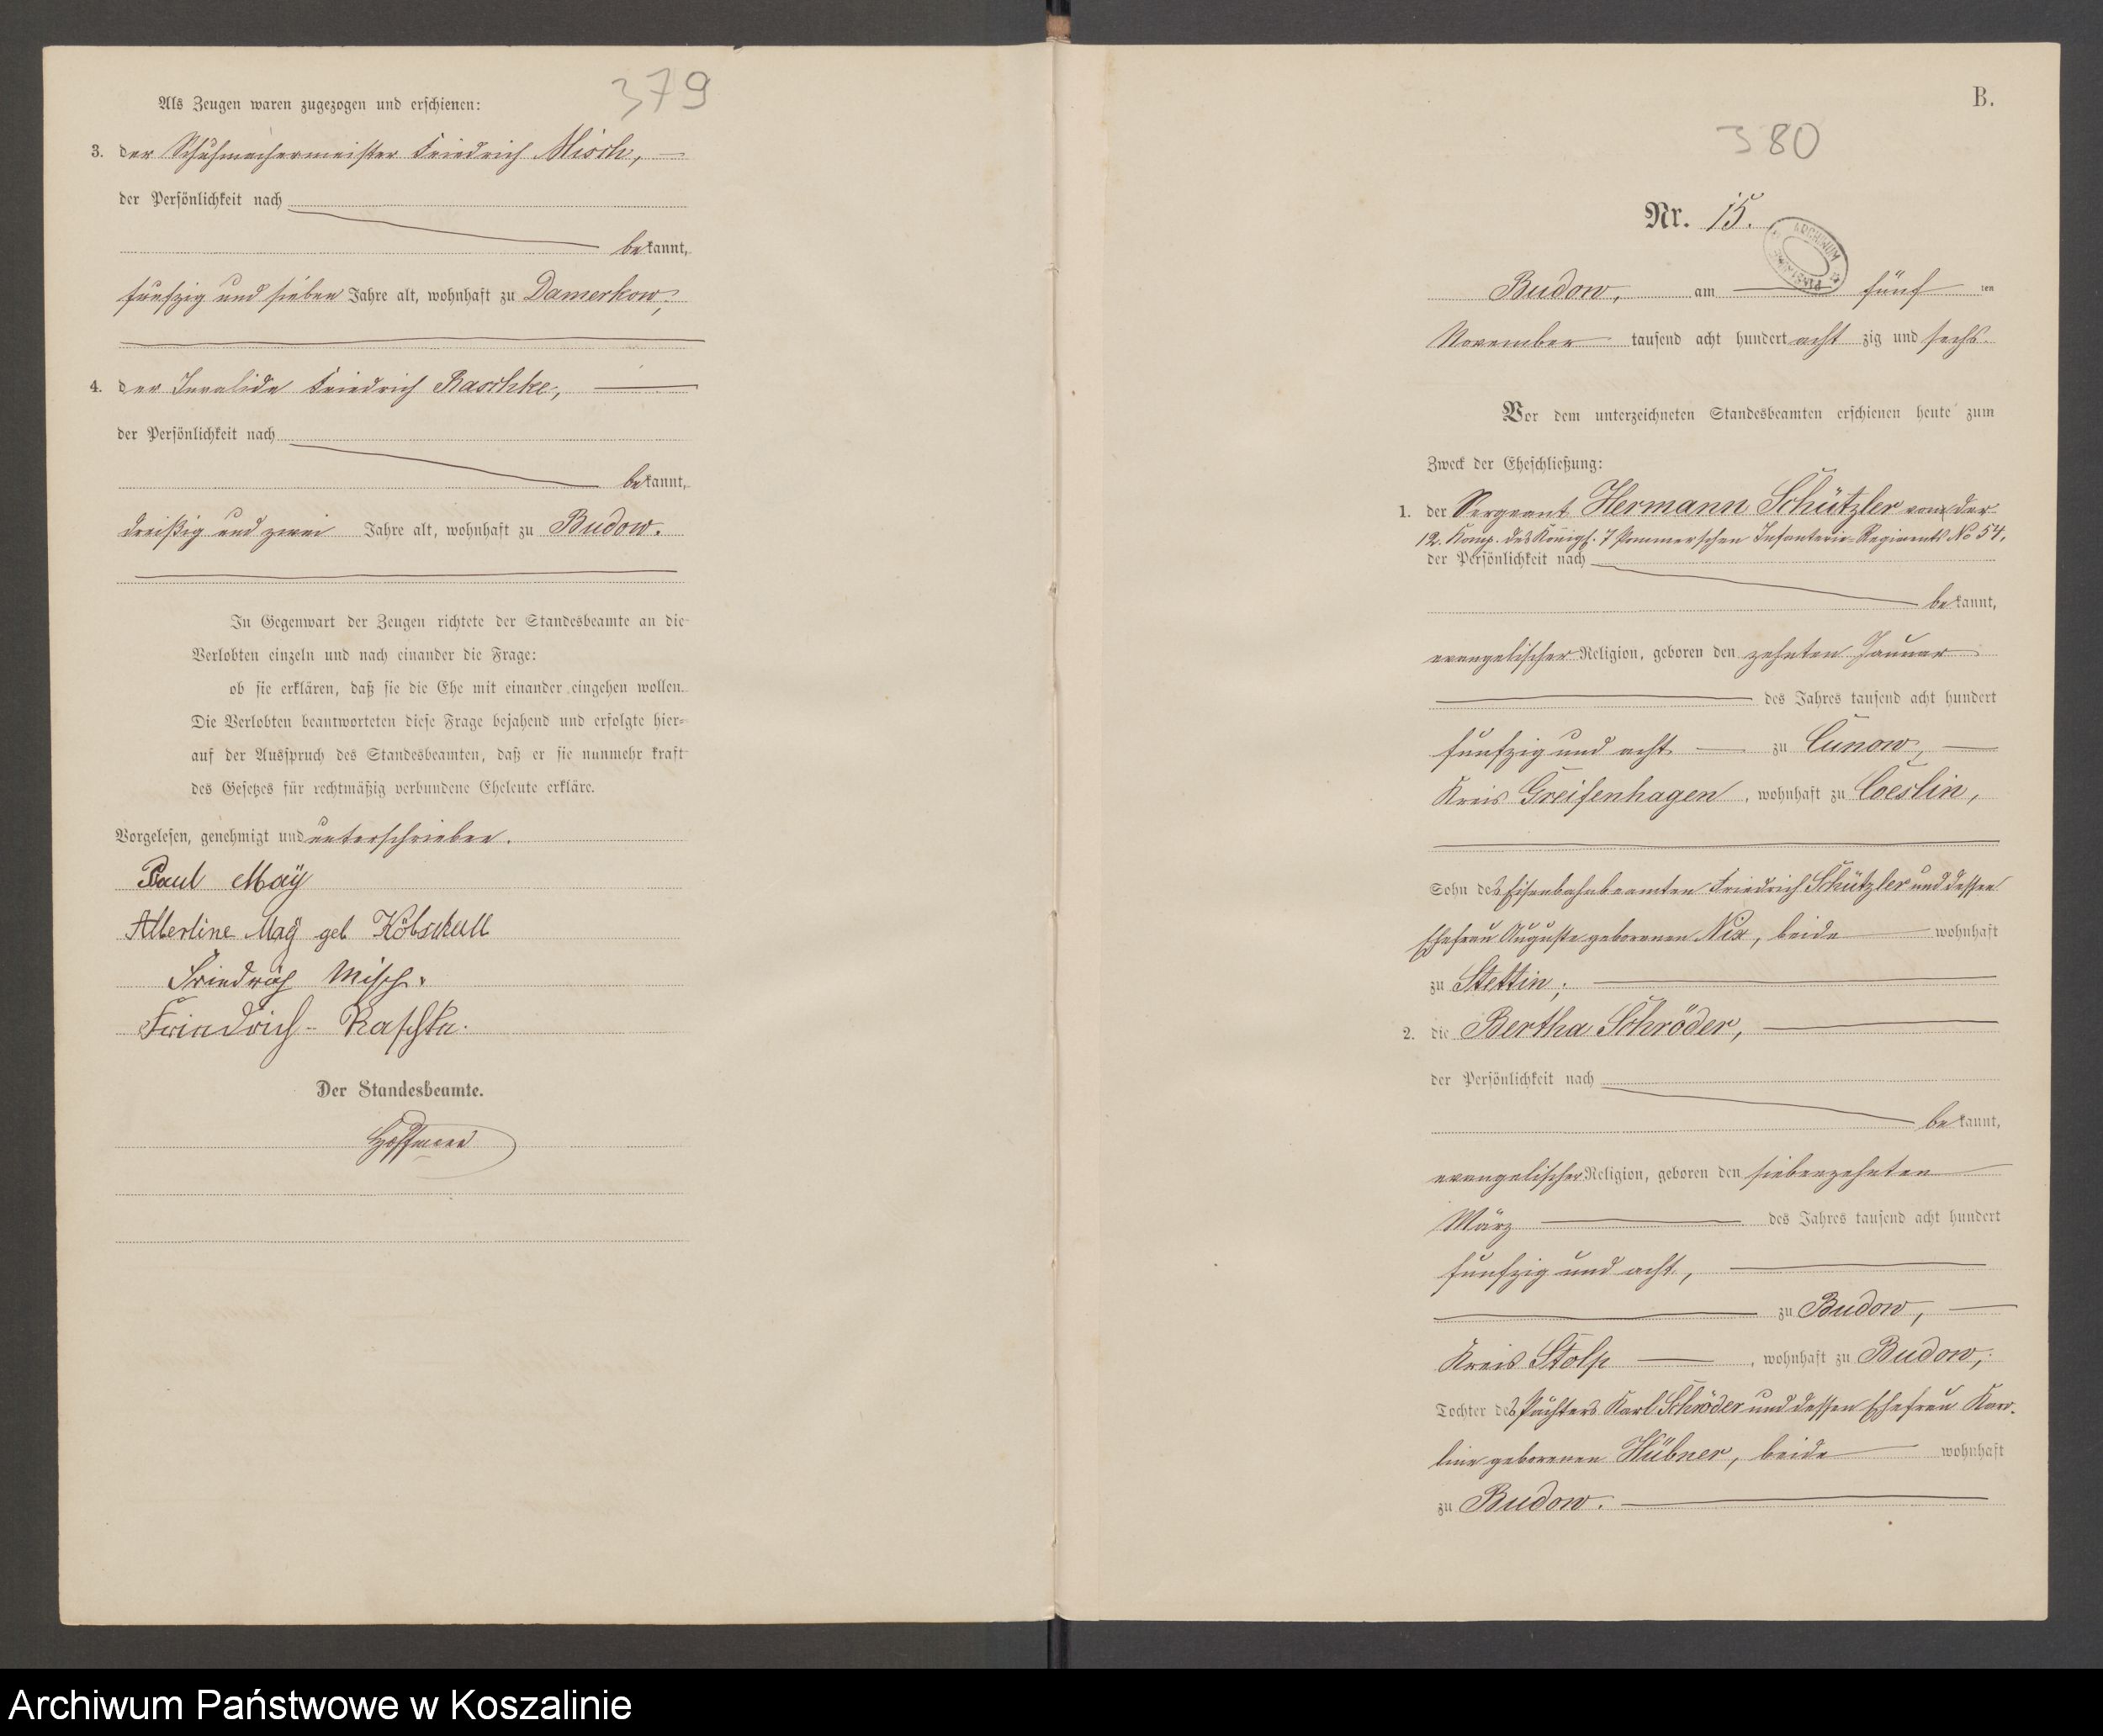 379
Als Zeugen waren zugezogen und erschienen:
3. der Schuhmachermeister Friedrich Misch,
der Persönlichkeit nach
bekannt,
fünfzig und sieben Jahre alt, wohnhaft zu Damerkow,
4. der Invalide Friedrich Raschke,
der Persönlichkeit nach
bekannt,
dreißig und zwei Jahre alt, wohnhaft zu Budow.
In Gegenwart der Zeugen richtete der Standesbeamte an die
Verlobten einzeln und nach einander die Frage:
ob sie erklären, daß sie die Ehe mit einander eingehen wollen.
Die Verlobten beantworteten diese Frage bejahend und erfolgte hier-
auf der Ausspruch des Standesbeamten, daß er sie nunmehr kraft
des Gesetzes für rechtmäßig verbundene Eheleute erkläre.
Vorgelesen, genehmigt und unterschrieben.
Paul Maÿ
Albertine Maÿ geb Köbschull
Friedrich Misch.
Friedrich Raschke.
Der Standesbeamte.
Hoffmann
B.
380
Nr. 15.
ARCHIWUM
Budow, am fünf ten
November tausend acht hundert acht zig und sechs.
Vor dem unterzeichneten Standesbeamten erschienen heute zum
Zweck der Eheschließung:
1. der Sergeant Hermann Schützler von der
12. Komp. des Königl. 7 Pommerschen Infanterie-Regiments No 54,
der Persönlichkeit nach
bekannt,
evangelischer Religion, geboren den zehnten Januar
des Jahres tausend acht hundert
fünfzig und acht zu Cunow,
Kreis Greifenhagen, wohnhaft zu Coeslin,
Sohn des Eisenbahnbeamten Friedrich Schützler und dessen
Ehefrau Auguste geborenen Nix, beide wohnhaft
zu Stettin;
2. die Bertha Schröder,
der Persönlichkeit nach
bekannt,
evangelischer Religion, geboren den siebenzehnten
März des Jahres tausend acht hundert
fünfzig und acht,
zu Budow,
Kreis Stolp, wohnhaft zu Budow,
Tochter des Pächters Karl Schröder und dessen Ehefrau Karo-
line geborenen Hübner, beide wohnhaft
zu Budow.
Archiwum Państwowe w Koszalinie